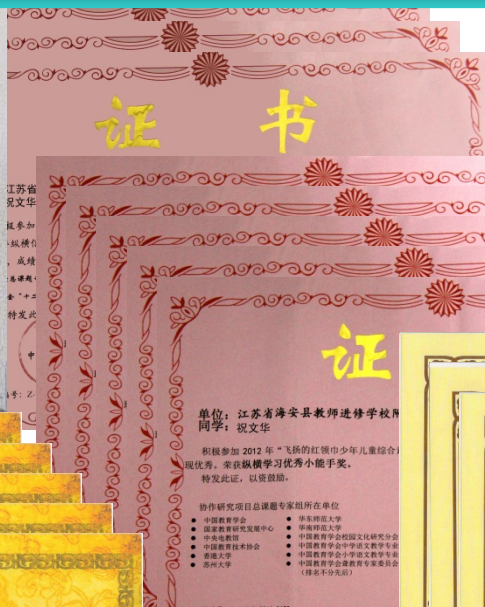 证 书
江苏省
祝文华
极参加
纵横信
，成绩
特发此
中
证
单位：江苏省海安县教师进修学校附
同学：祝文华
积极参加 2012 年“飞扬的红领巾少年儿童综合
现优秀。荣获纵横学习优秀小能手奖。
特发此证，以资鼓励。
协作研究项目总课题专家组所在单位
● 中国教育学会
● 国家教育研究发展中心
● 中央电教馆
● 中国教育技术协会
● 香港大学
● 苏州大学
● 华东师范大学
● 华南师范大学
● 中国教育学会校园文化研究分会
● 中国教育学会中学语文教学专业
● 中国教育学会小学语文教学专业
● 中国教育学会聋教育专家委员会
（排名不分先后）